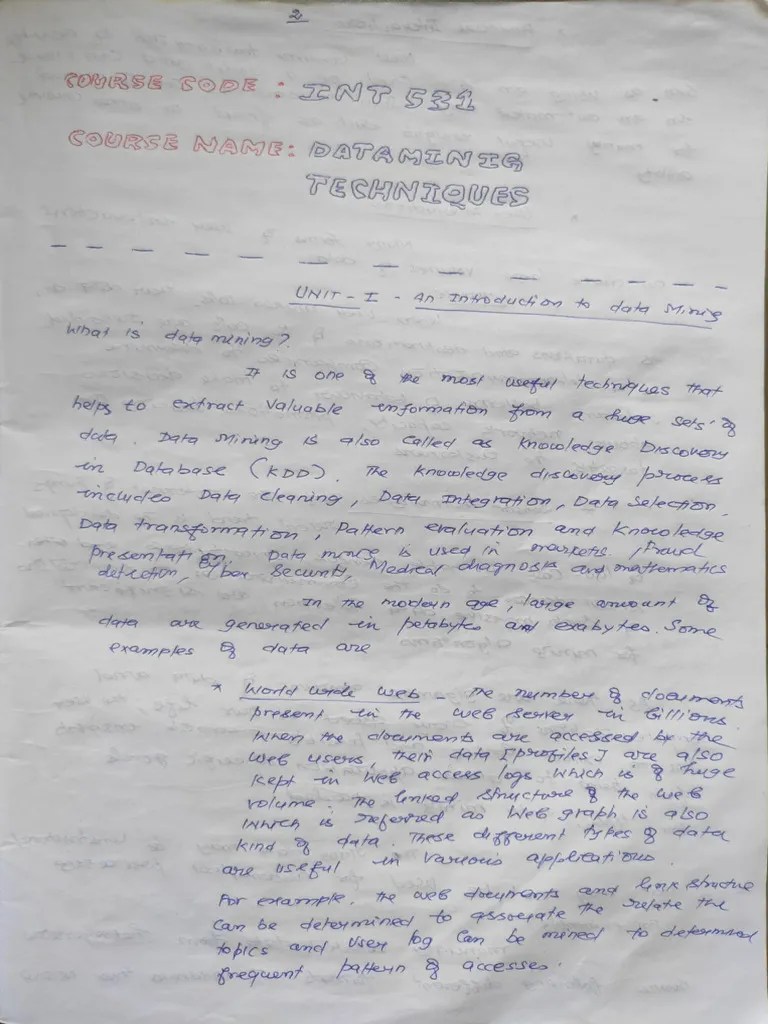 2
COURSE CODE : INT 531
COURSE NAME: DATAMINIG
TECHNIQUES
UNIT - I - An Introduction to data Mining
What is data mining?
It is one of the most useful techniques that
helps to extract valuable information from a huge sets of
data. Data Mining is also called as Knowledge Discovery
in Database (KDD). The knowledge discovery process
includes Data cleaning, Data Integration, Data Selection,
Data transformation, Pattern evaluation and Knowledge
presentation. Data mince is used in markets, fraud
detection, Security, Medical diagnosis and mathematics
In the modern age, large amount of
data are generated in petabytes and exabytes. Some
examples of data are
* World Wide Web - The number of documents
present in the web server in billions.
When the documents are accessed by the
web users, their data [profiles] are also
kept in web access logs which is of huge
volume. The linked structure of the web
which is referred as Web graph is also
kind of data. These different types of data
are useful in various applications.
For example, the web documents and link structure
can be determined to associate the relate the
topics and user log can be mined to determined
frequent pattern of accesses.